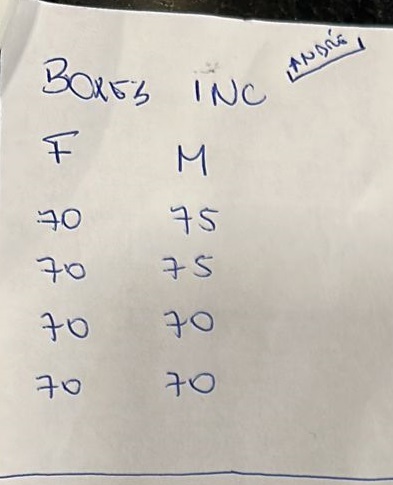 ANDRÉ
BOXES INC
F M
70 75
70 75
70 70
70 70